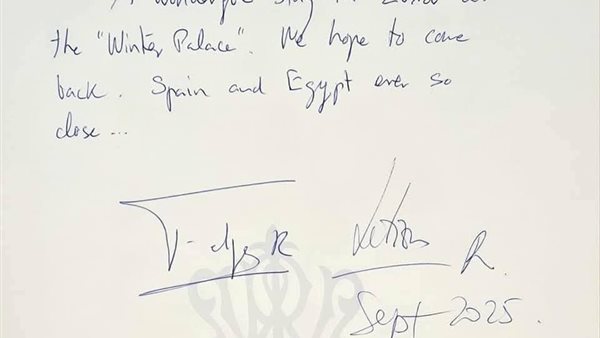 A wonderful stay in Luxor at
the "Winter Palace". We hope to come
back. Spain and Egypt ever so
close...
Felipe R Letizia R.
Sept 2025.